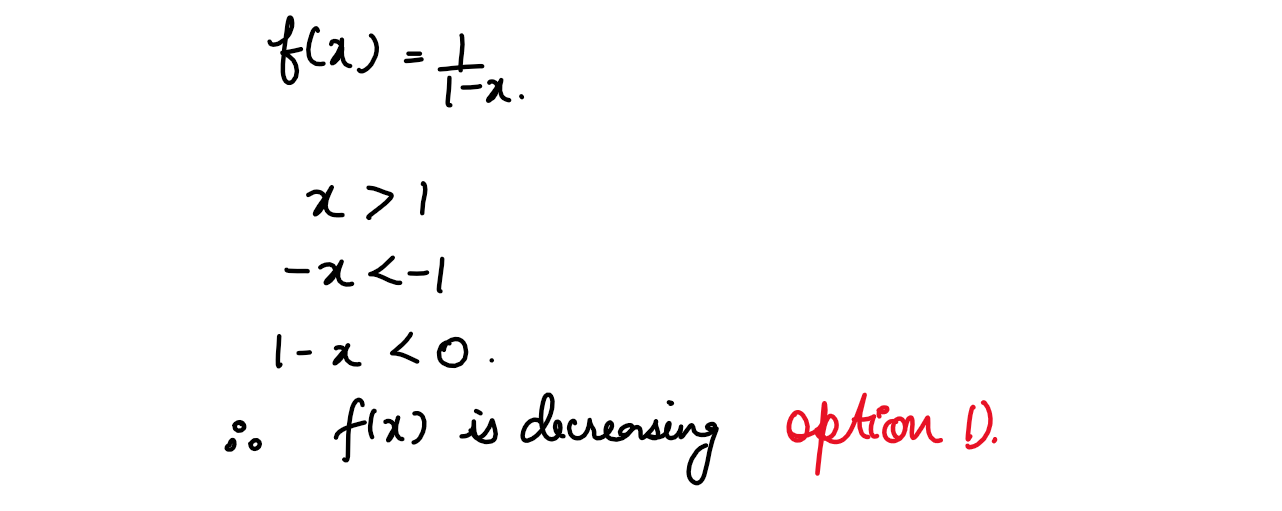 f(x) = 1/1-x.
x > 1
-x < -1
1-x < 0.
∴ f(x) is decreasing option D.